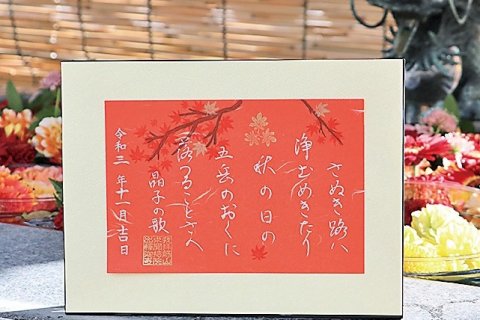 さぬき路は
浄むめきたり
秋の日の
五岳のおくに
落つることさへ
晶子の歌
令和三年十一月吉日